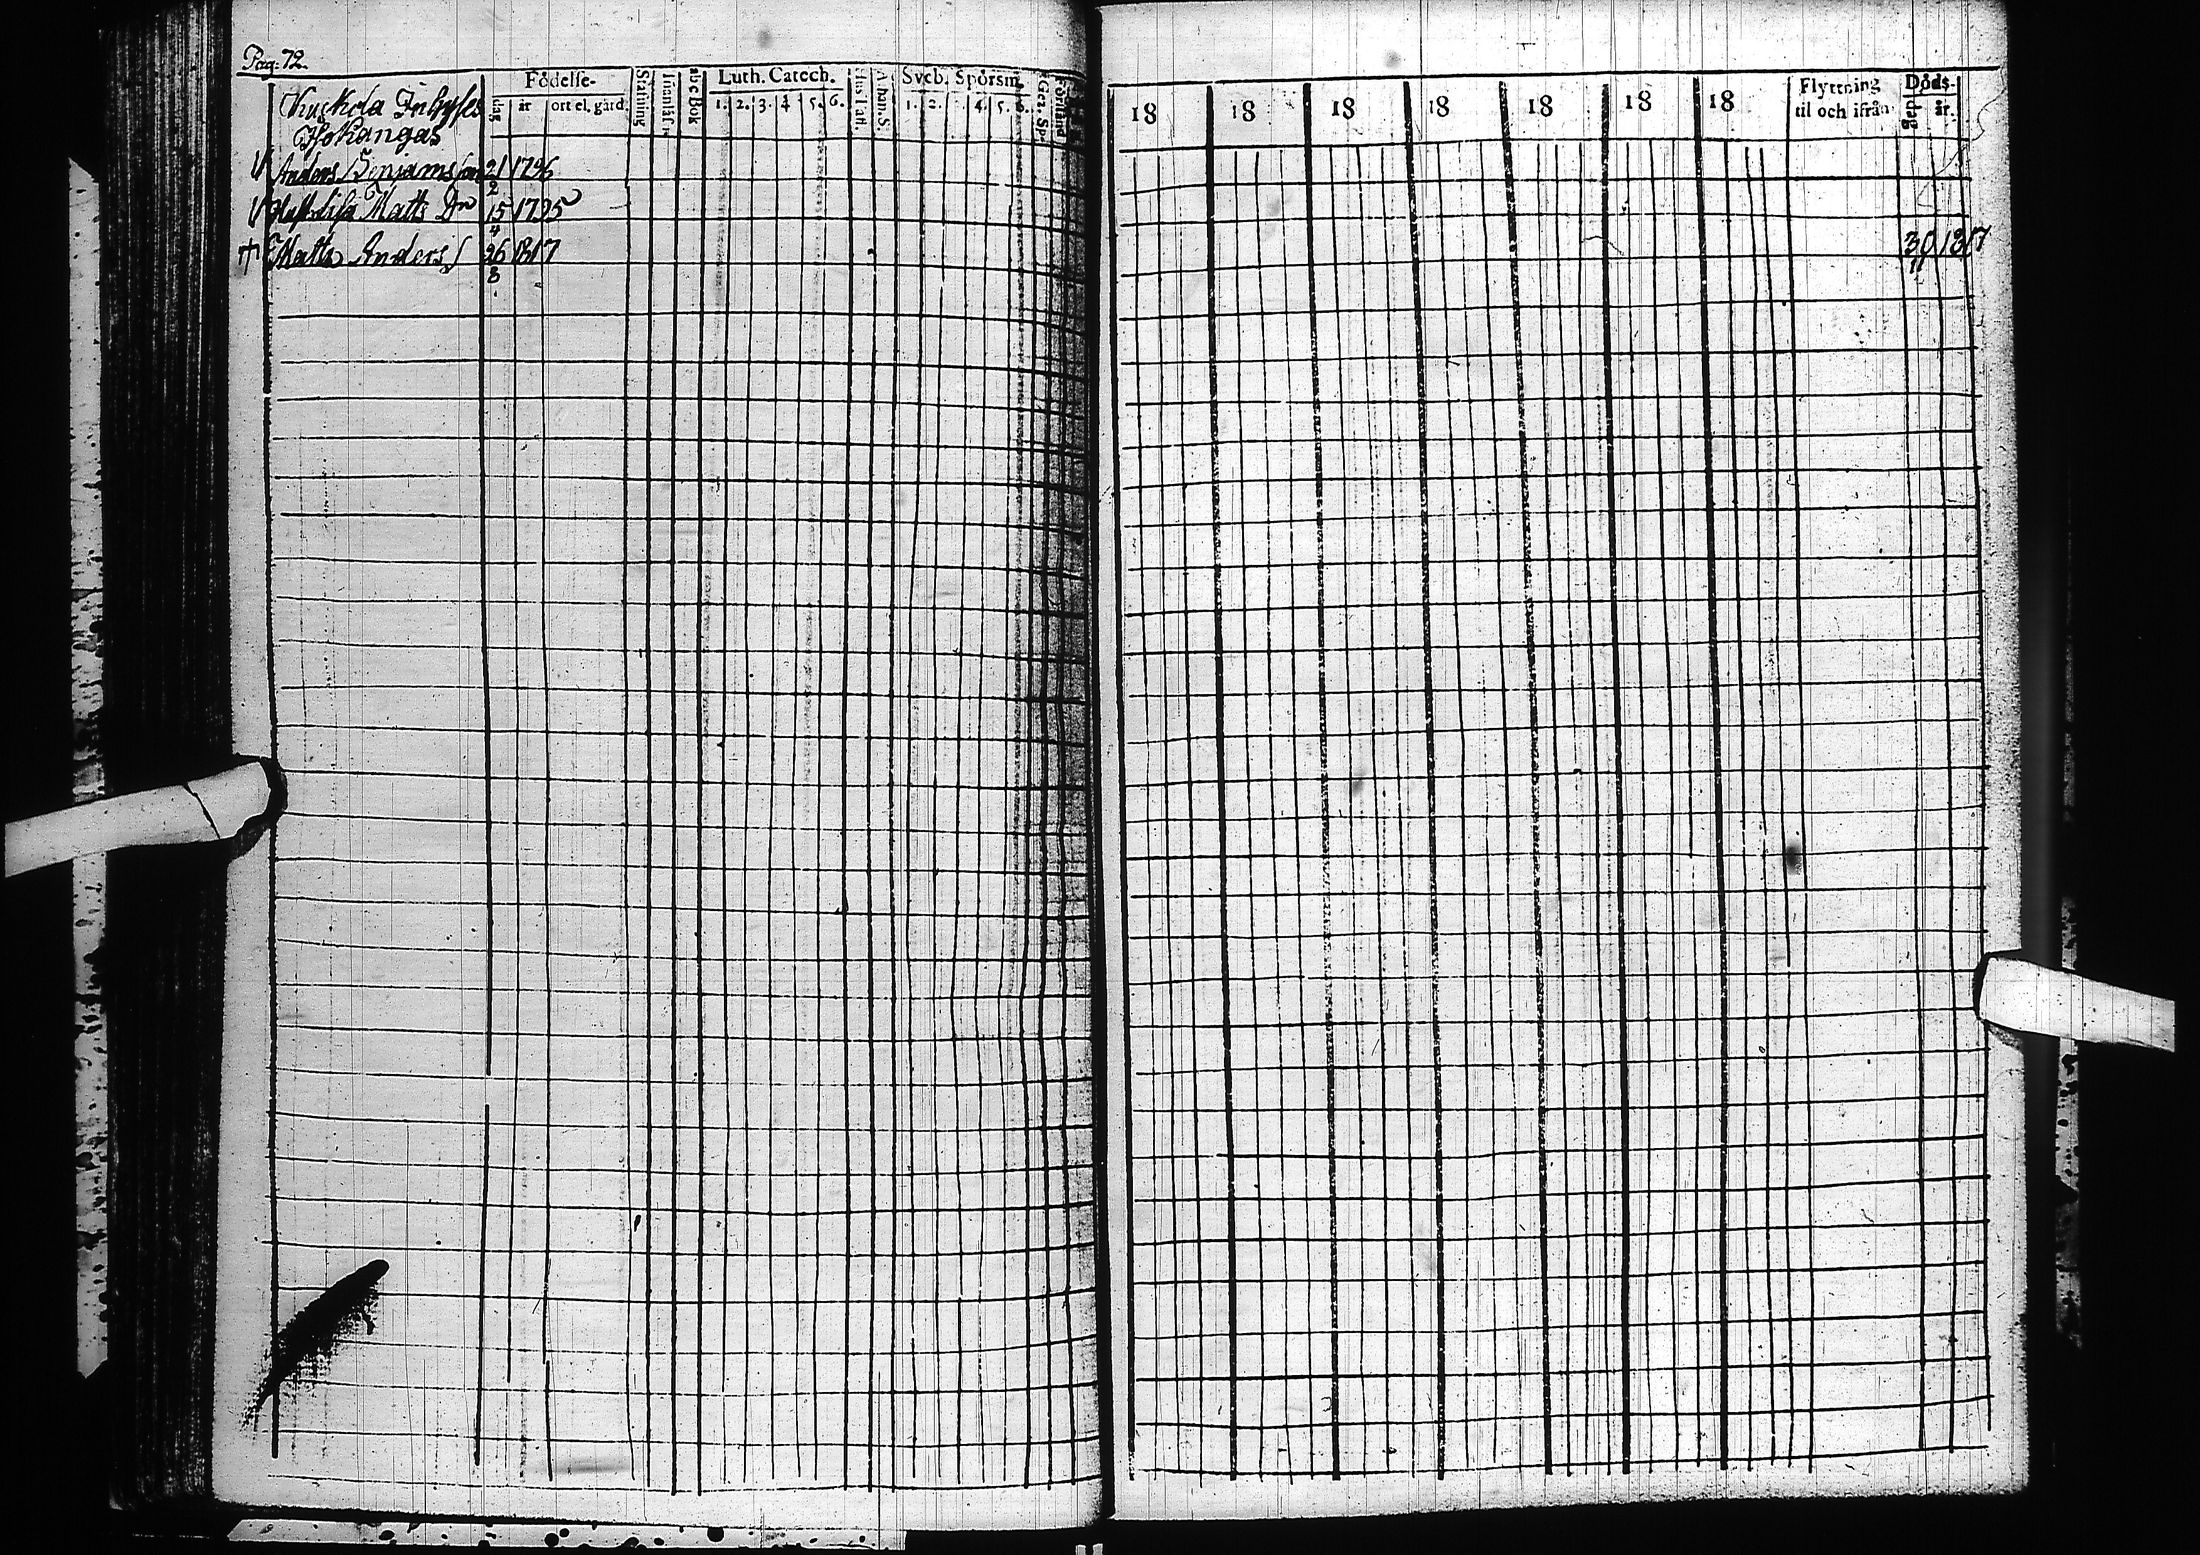 Pag. 72.
Födelse-
dag år ort el. gård.
Stafning
Innanläsn
abc Bok
Luth. Catech.
1. 2. 3. 4 5. 6.
Hus Tafl.
A than. S.
Sveb. Spörsm.
1. 2. 4. 5. 6.
Ger. Sp.
Förstånd
18 18 18 18 18 18 18
Flyttning
til och ifrån
Döds-
dag år.
Inhyses
Anders Benjamsson 21/2 1796
Hust. Lisa Matts Dr 15/4 1795
† Matts Anders S 26/8 1817 30/11 1817